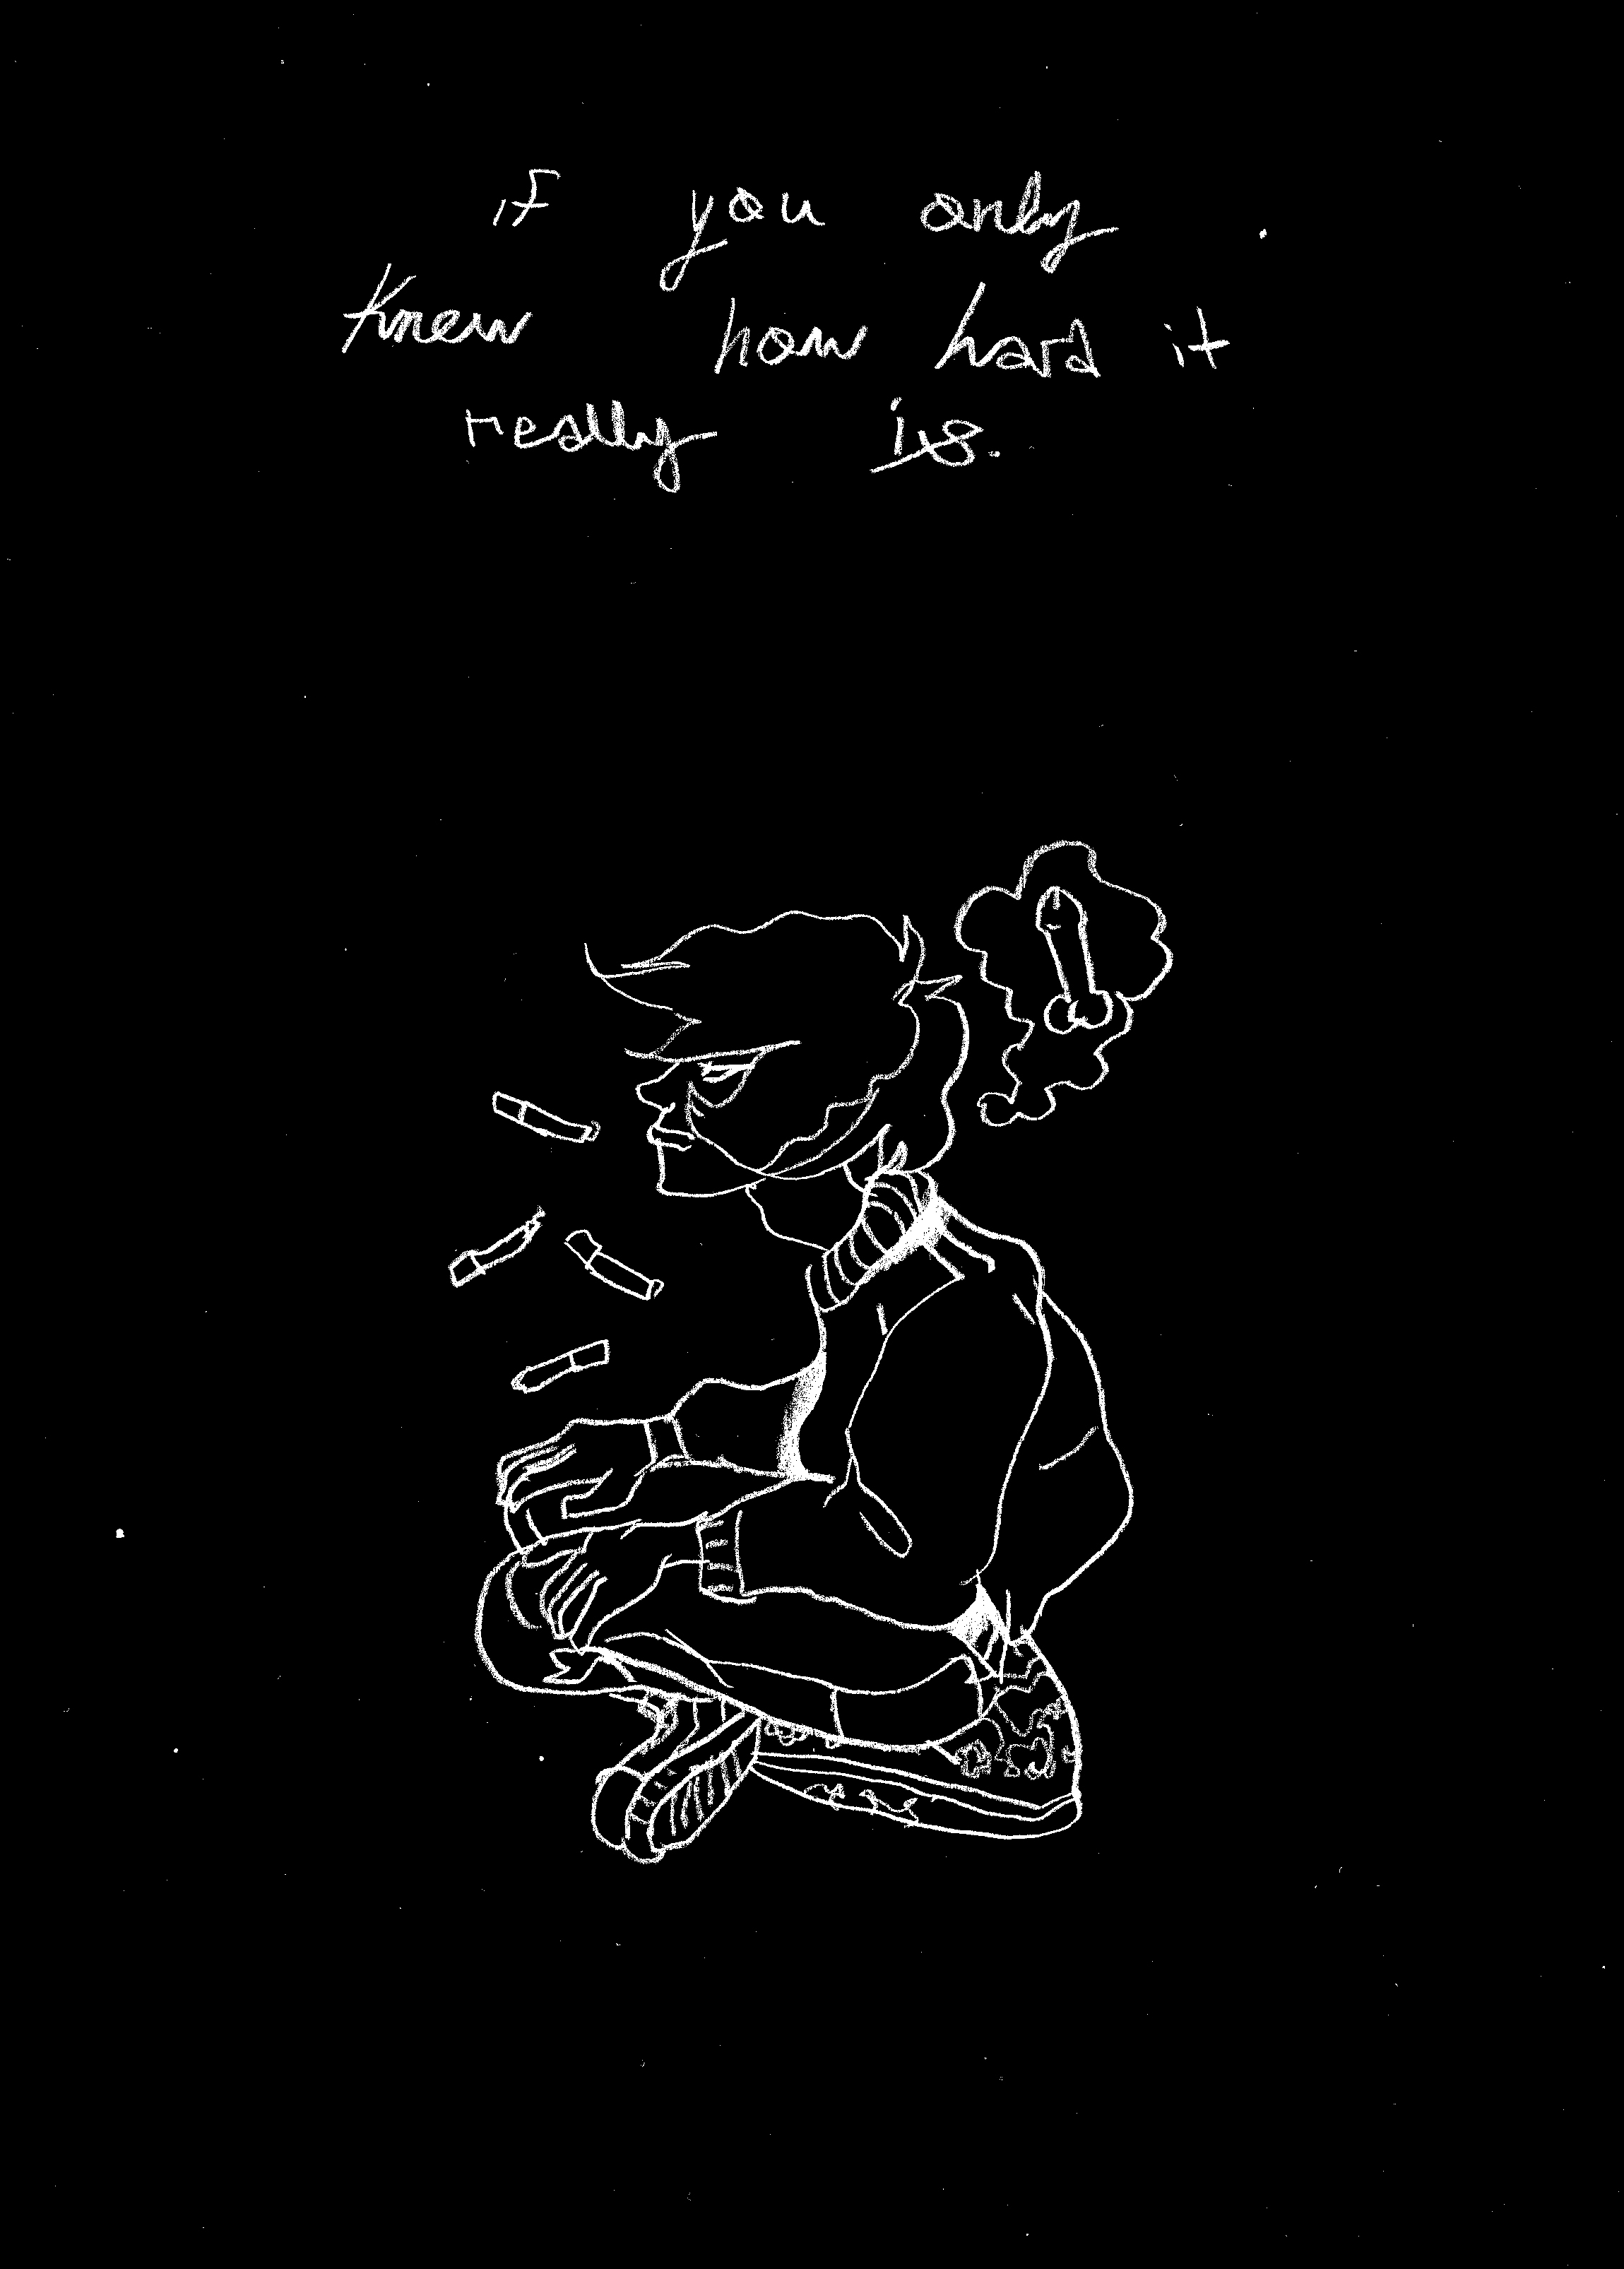 if you only
knew how hard it
really is.